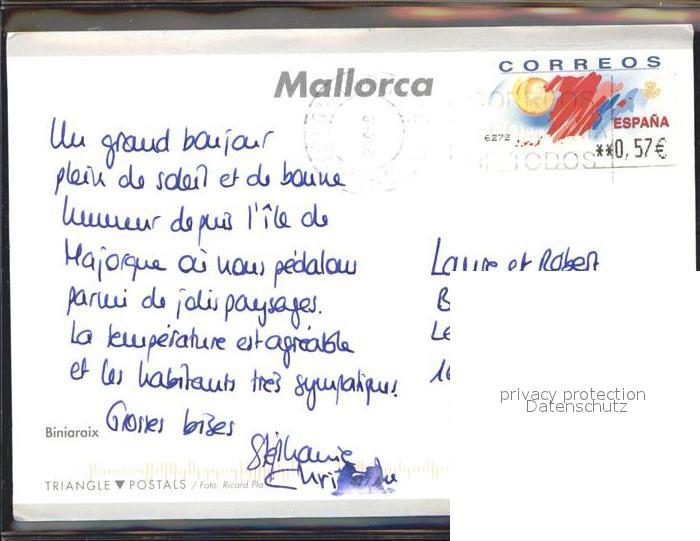 CORREOS
Mallorca
ESPAÑA
6272
**0,57€
TODOS
Un grand bonjour
plein de soleil et de bonne
humeur depuis l'île de
Majorque où nous pédalons
parmi de jolis paysages.
La température est agréable
et les habitants très sympatiques!
Grosses bises
Stéphanie
Laure et Robert
B
Le
16
privacy protection
Datenschutz
Biniaraix
TRIANGLE ▼ POSTALS / Foto: Ricard Pla